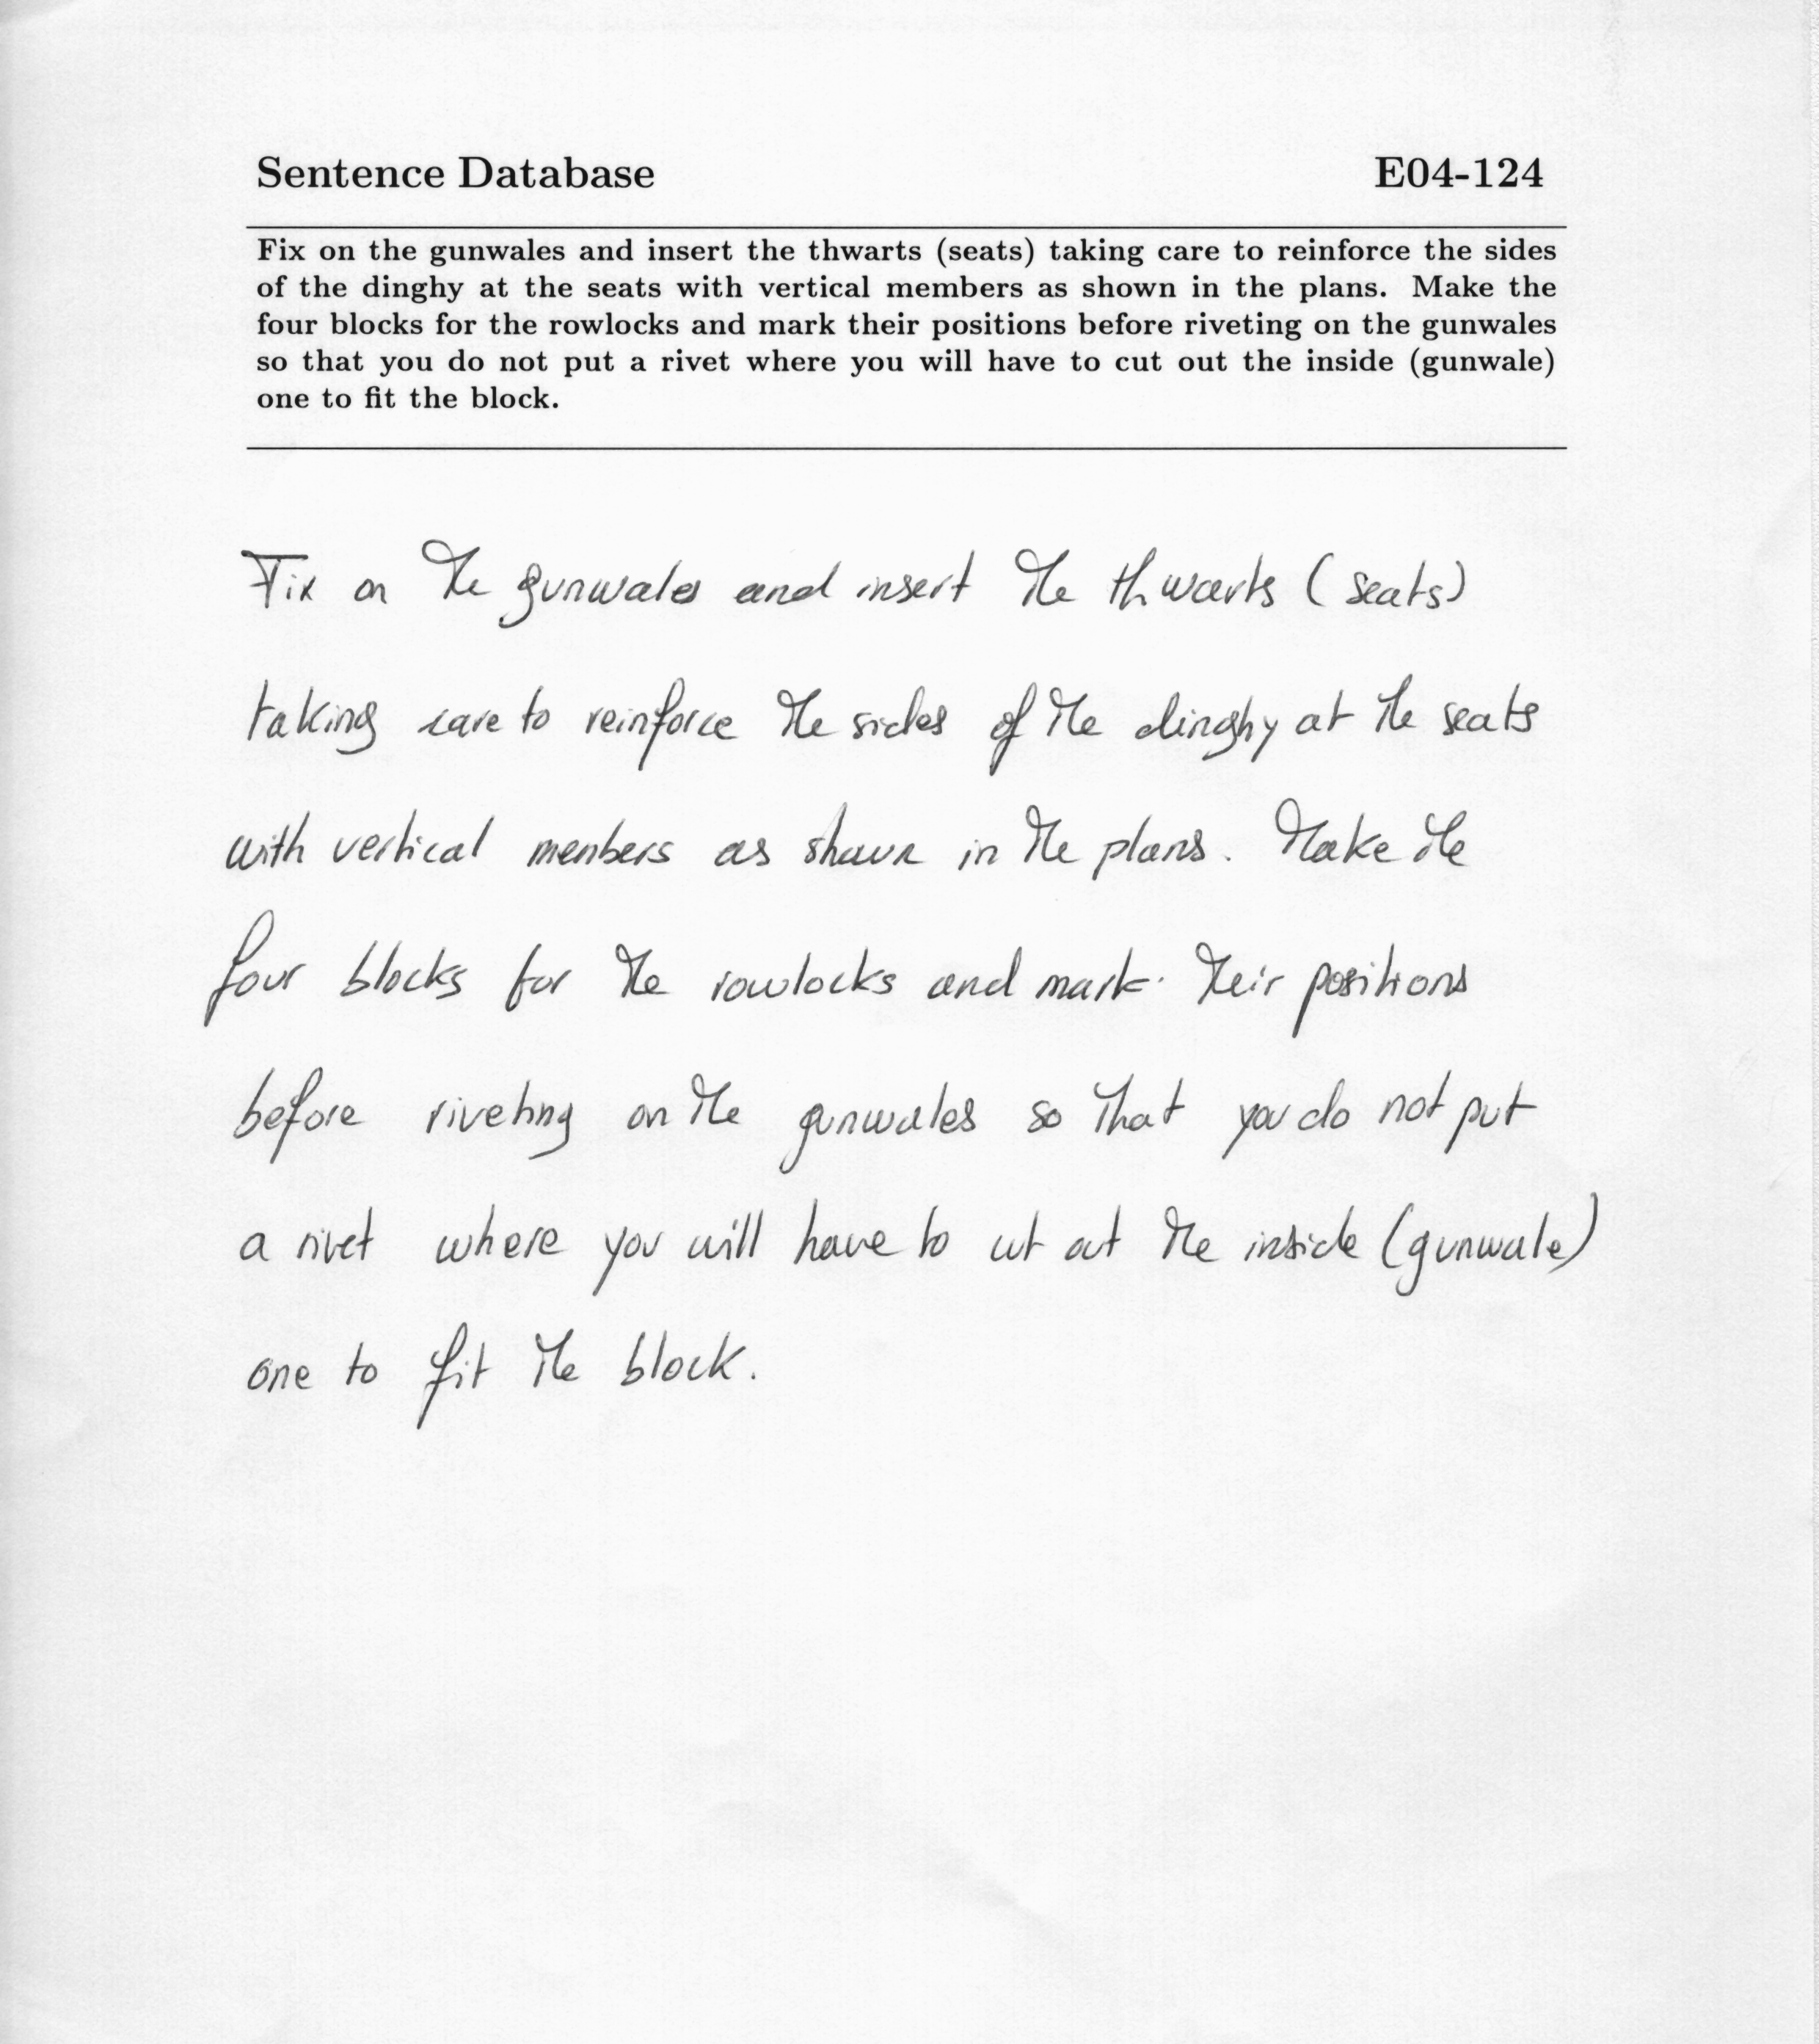 Sentence Database E04-124
Fix on the gunwales and insert the thwarts (seats) taking care to reinforce the sides
of the dinghy at the seats with vertical members as shown in the plans. Make the
four blocks for the rowlocks and mark their positions before riveting on the gunwales
so that you do not put a rivet where you will have to cut out the inside (gunwale)
one to fit the block.
Fix on the gunwales and insert the thwarts (seats)
taking care to reinforce the sides of the dinghy at the seats
with vertical members as shown in the plans. Make the
four blocks for the rowlocks and mark their positions
before riveting on the gunwales so that you do not put
a rivet where you will have to cut out the inside (gunwale)
one to fit the block.